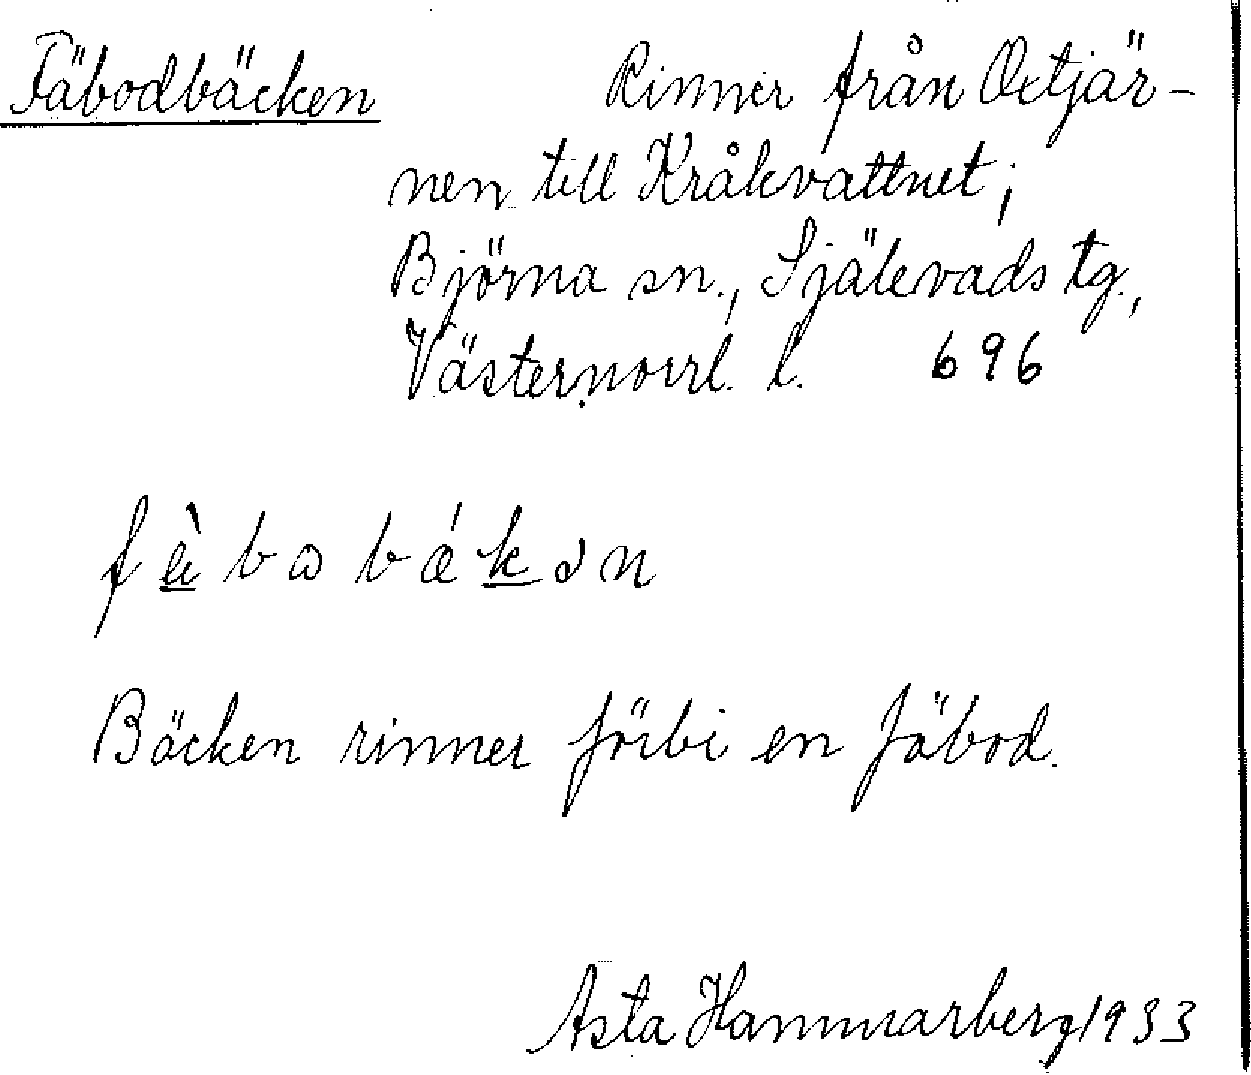 Fäbodbäcken Rinner från Oxtjär-
nen till Kråkvattnet;
Björna sn., Själevads tg.,
Västernorrl. l. 696
Bäcken rinner förbi en fäbod.
Asta Hammarberg 1933